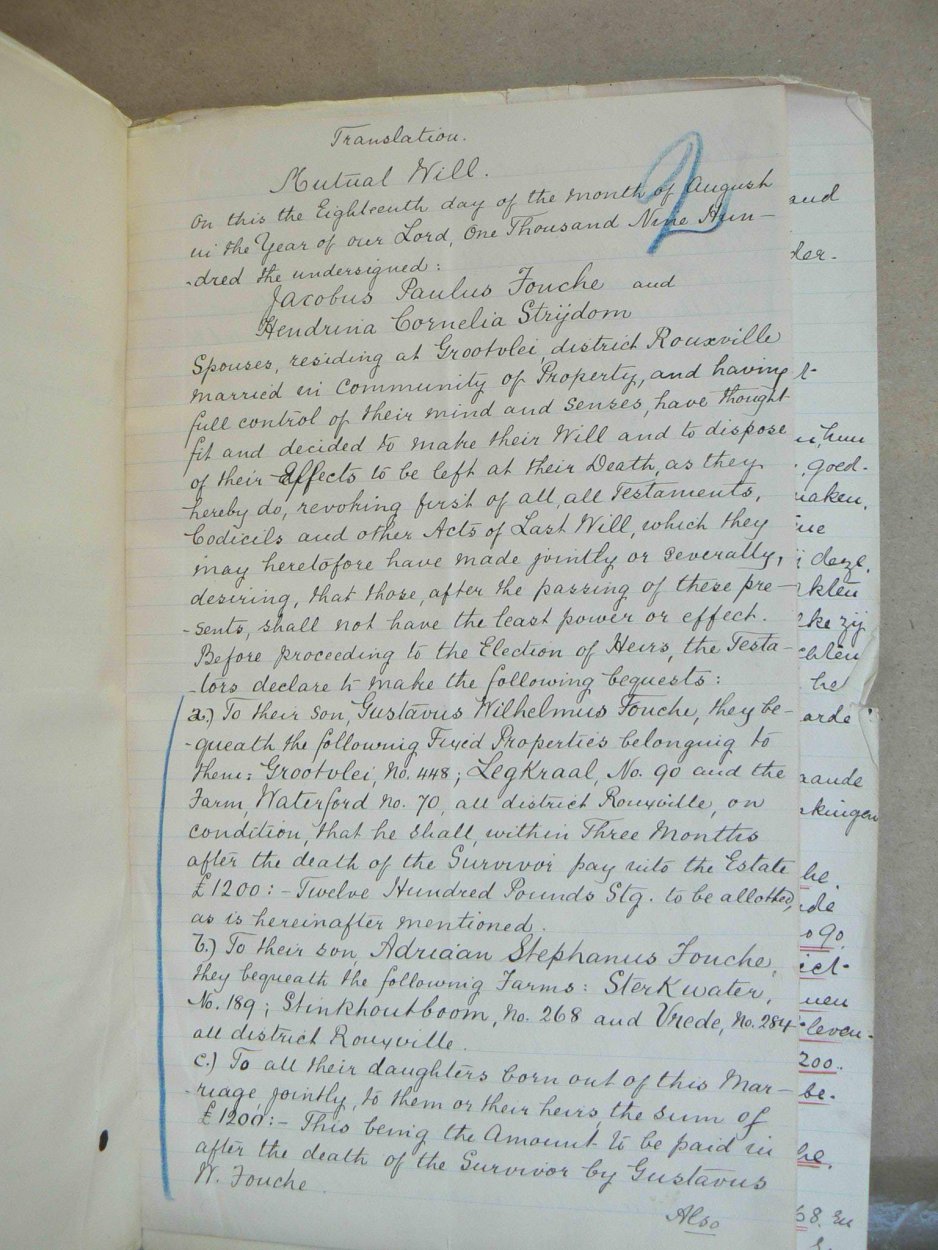 Translation.
2
Mutual Will.
On this the Eighteenth day of the month of August
in the Year of our Lord, One Thousand Nine Hun-
-dred the undersigned:
Jacobus Paulus Fouche and
Hendrina Cornelia Strijdom
Spouses, residing at Grootvlei, district Rouxville
married in Community of Property, and having
full control of their mind and senses, have thought
fit and decided to make their Will and to dispose
of their Effects to be left at their Death, as they
hereby do, revoking first of all, all Testaments,
Codicils and other Acts of Last Will, which they
may heretofore have made jointly or severally,
desiring, that those, after the passing of these pre-
-sents, shall not have the least power or effect.
Before proceeding to the Election of Heirs, the Testa-
-tors declare to make the following bequests:
a.) To their son, Gustavus Wilhelmus Fouche, they be-
-queath the following Fixed Properties belonging to
them: Grootvlei, No. 448; LegKraal, No. 90 and the
Farm, Waterford No. 70, all district Rouxville, on
condition, that he shall, within Three Months
after the death of the Survivor pay into the Estate
£1200:- Twelve Hundred Pounds Stg. to be allotted,
as is hereinafter mentioned.
b.) To their son, Adriaan Stephanus Fouche,
they bequeath the following Farms: SterKwater,
No. 189; Stinkhoutboom, No. 268 and Vrede, No. 284
all district Rouxville.
c.) To all their daughters born out of this Mar-
-riage, jointly, to them or their heirs, the sum of
£1200:- This being the Amount to be paid in
after the death of the Survivor by Gustavus
W. Fouche
Also
aud
der-
t-
hun
goed-
maken,
deze,
kten
lke zij
chten
he
arde
aande
rkingen
he
de
o 90
ict-
uen
leven-
200.
be-
he.
68. En